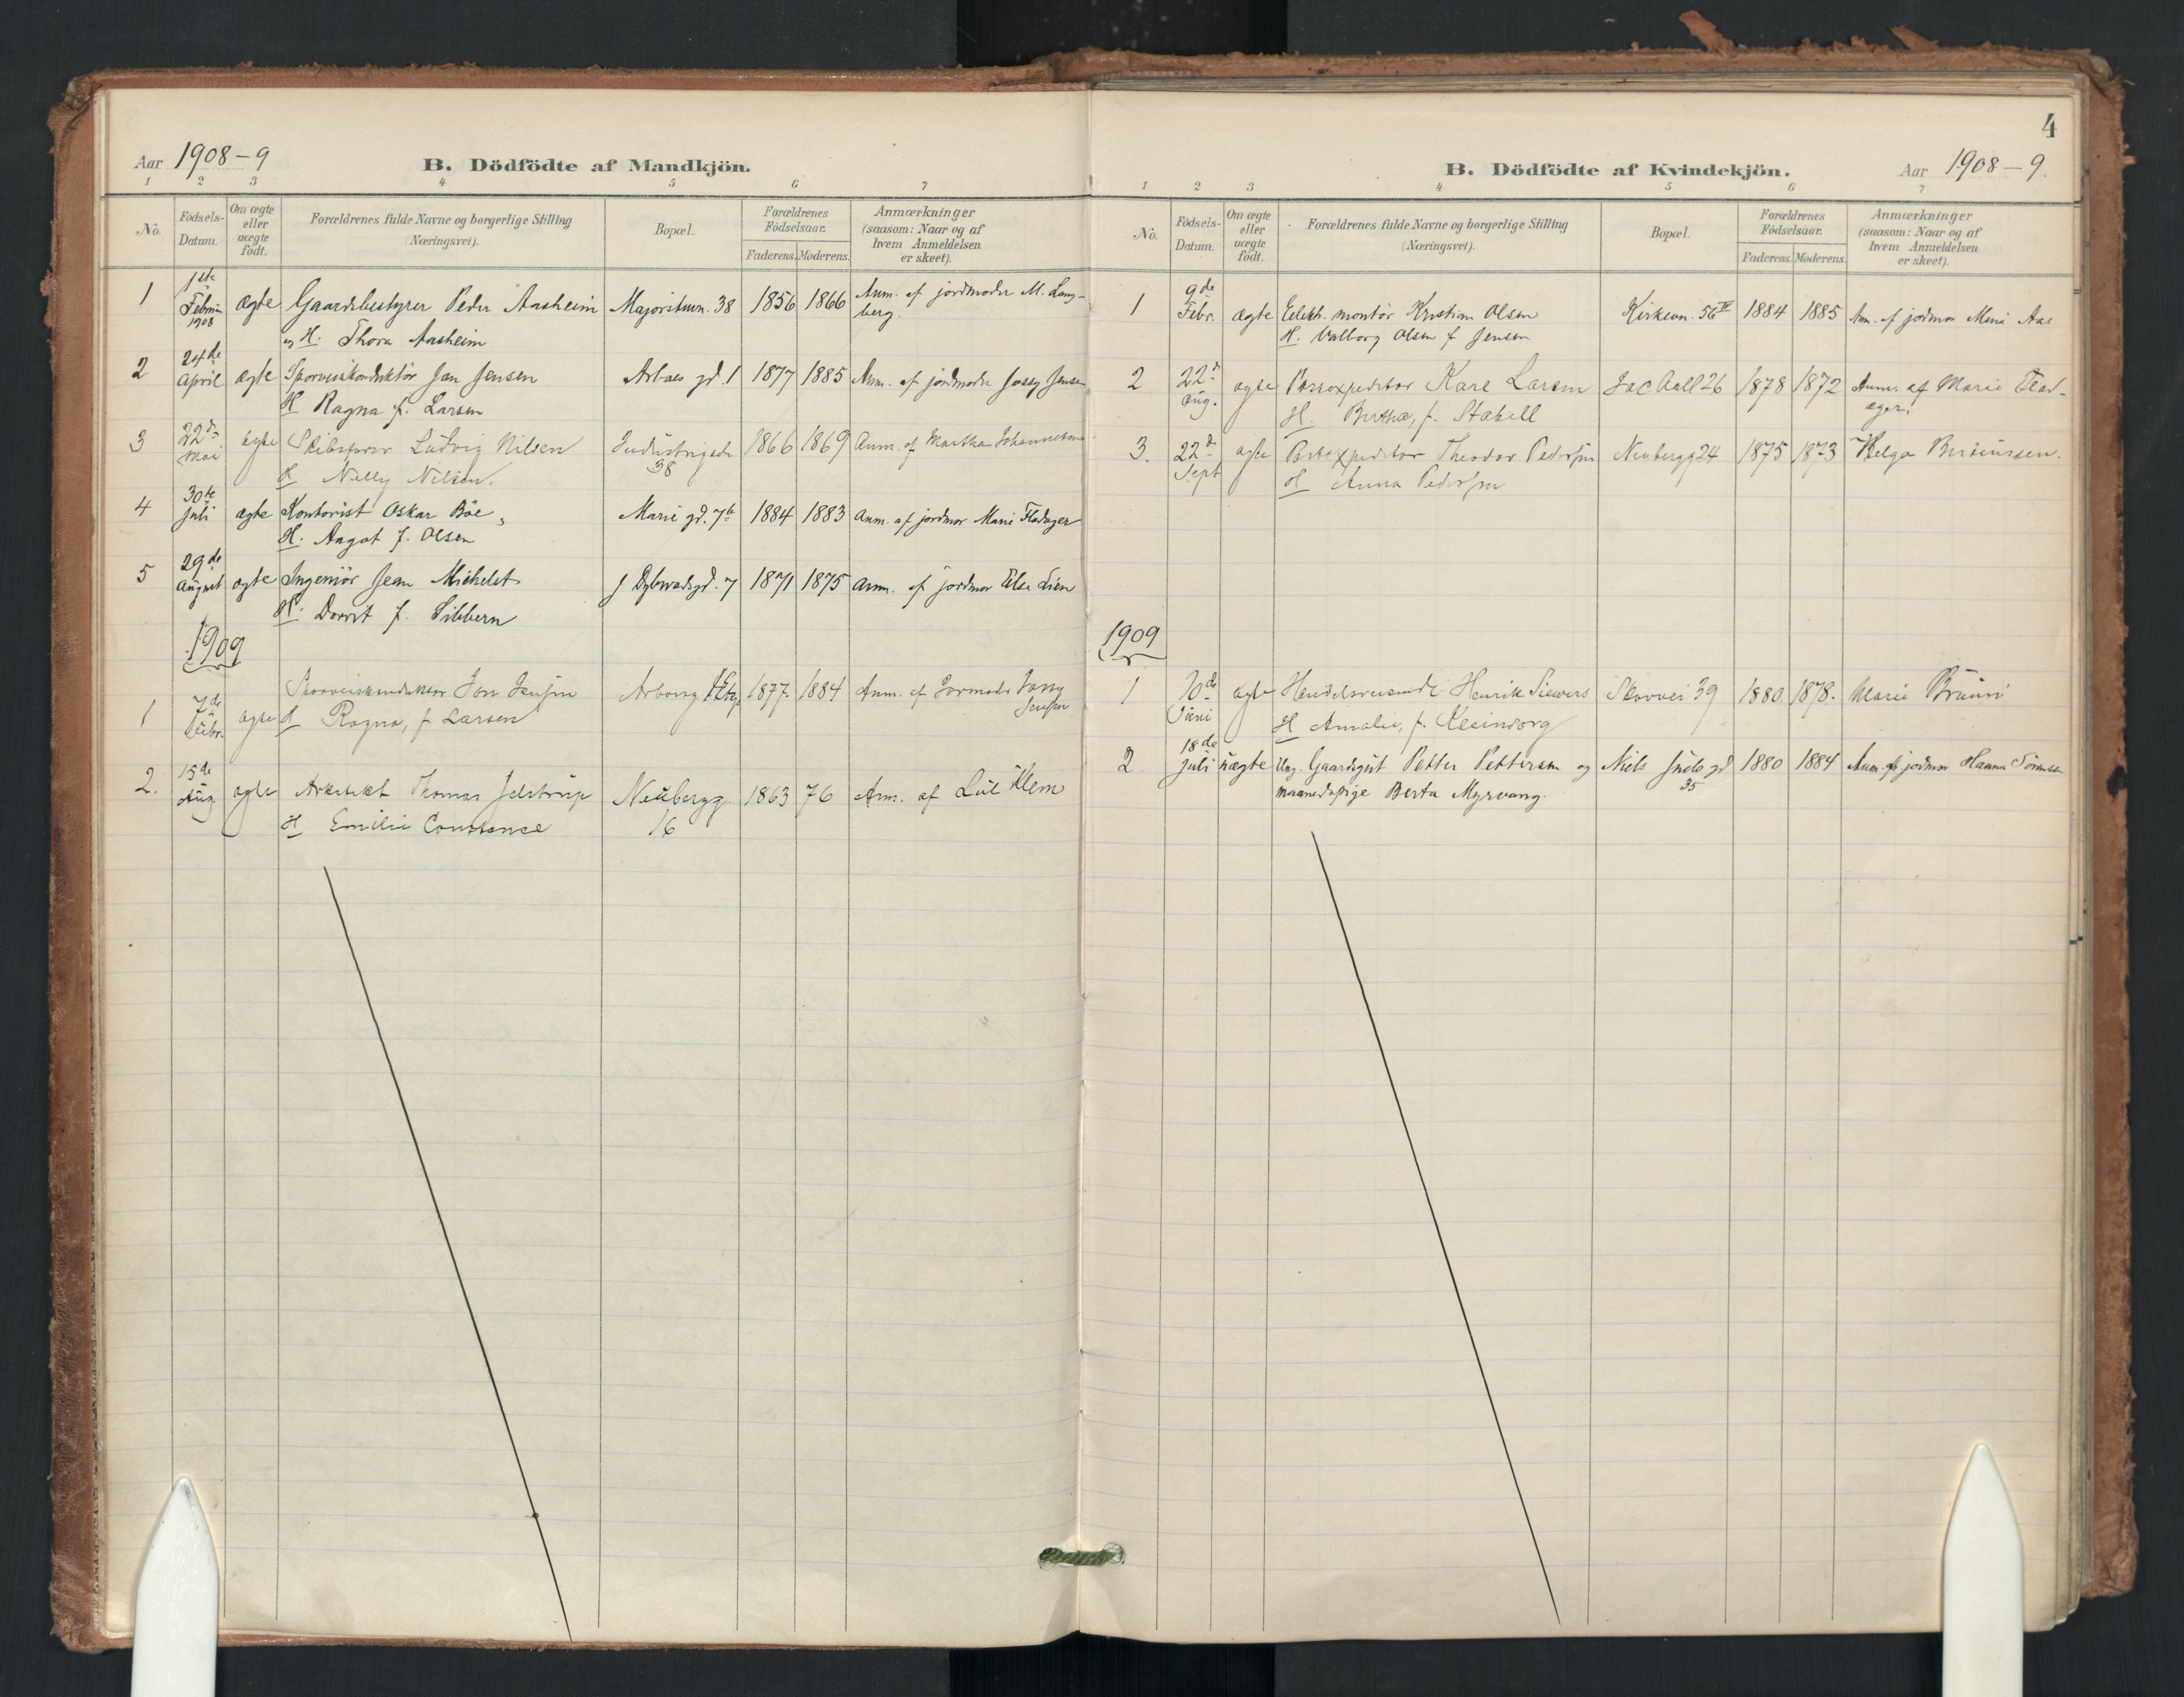 Aar 1908-9
B. Dödfödte af Mandkjön.
1 2 3 4 5 6 7
No.
Födsels-Datum.
Om ægte eller uægte födt.
Forældrenes fulde Navne og borgerlige Stilling (Næringsvei).
Bopæl.
Forældrenes Födselsaar.
Faderens. Moderens.
Anmærkninger (saasom: Naar og af hvem Anmeldelsen er skeet).
1 1ste Februar 1908 ægte Gaardsbestyrer Peder Aasheim Majorstuvn. 38 1856 1866 Anm. af jordmoder M. Lang-
og H. Thora Aasheim berg.
2 24de April ægte Sporveiskonduktör Jan Jensen Arboes gd. 1 1877 1885 Anm. af jordmoder Jossy Jensen
H Ragna f. Larsen
3 22de Mai ægte Skibsfører Ludvig Nilsen Industrigade 1866 1869 Anm. af Martha Johannesen
H Nelly Nilsen. 38
4 30te Juli ægte Kontorist Oskar Böe, Marie gd. 7b 1884 1883 Anm. af jordmor Marie Fladager
H. Aagot f. Olsen
5 29de August ægte Ingeniör Jean Michelet J Dybwadsgd. 7 1871 1875 Anm. af jordmor Else Lien
H. Dorrit f. Sibbern
1909
1 7de Febr. ægte Sporveiskonduktør Jon Jensen Arboesg 1 Etg 1877. 1884 Anm. af Jormoder Jossy
H Ragna, f Larsen Jensen
2. 15de Aug ægte Arkitekt Thomas Jelstrup Neubergg 1863 76 Anm. af Lul Klem
H Emilie Constance 16
4
B. Dödfödte af Kvindekjön.
Aar 1908-9.
1 2 3 4 5 6 7
No.
Födsels-Datum.
Om ægte eller uægte födt.
Forældrenes fulde Navne og borgerlige Stilling (Næringsvei).
Bopæl.
Forældrenes Födselsaar.
Faderens. Moderens.
Anmærkninger (saasom: Naar og af hvem Anmeldelsen er skeet).
1 9de Febr. ægte Elekt. montör Kristian Olsen Kirkevn. 56 IV 1884 1885 Anm. af jordmor Marie Aas
H. Valborg Olsen f Jensen
2 22de Aug. ægte Postexpeditør Karl Larsen Jac Aall 26 1878 1872 Anm. af Marie Flad-
H. Bertha, f. Stabell ager.
3. 22de Sept ægte Postexpeditør Theodor Pedersen Neubergg 24 1875 1873 Helga Berntsen.
H Anna Pedersen
1909
1 10de Juni ægte Handelsreisende Henrik Siewers Skovvei 39 1880. 1878. Marie Bruun
H Amalie, f. Kleinsorg
2 18de Juli uægte Ung. Gaardsgut Petter Pettersen og Niels Juels gd 1880 1884 Anm. af jordmor Hanna Sörensen
Maanedspige Berta Myrvang. 35